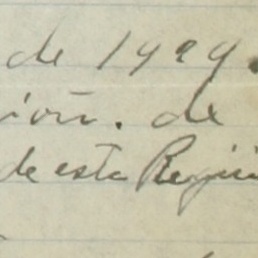 de 1929.
ión. de
de esta Regi